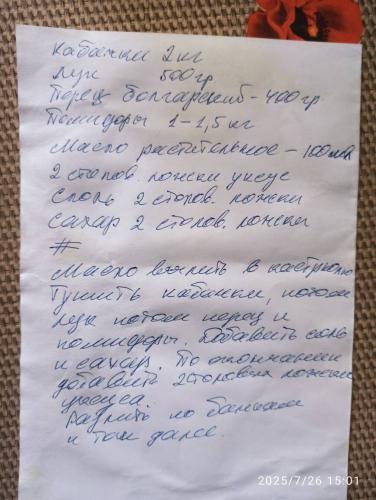 Кабачки 2 кг
Лук 500 гр
Перец болгарский - 400 гр
Помидоры 1-1,5 кг
Масло растительное - 100 мл
2 столов. ложки уксус
Соль 2 столов. ложки
Сахар 2 столов. ложки
#
Масло вылить в кастрюлю
Тушить кабачки, потом
лук потом перец и
помидоры. Добавить соль
и сахар. По окончании
добавить 2 столовых ложки
уксуса.
Разлить по банкам
и так далее.
2025/7/26 15:01